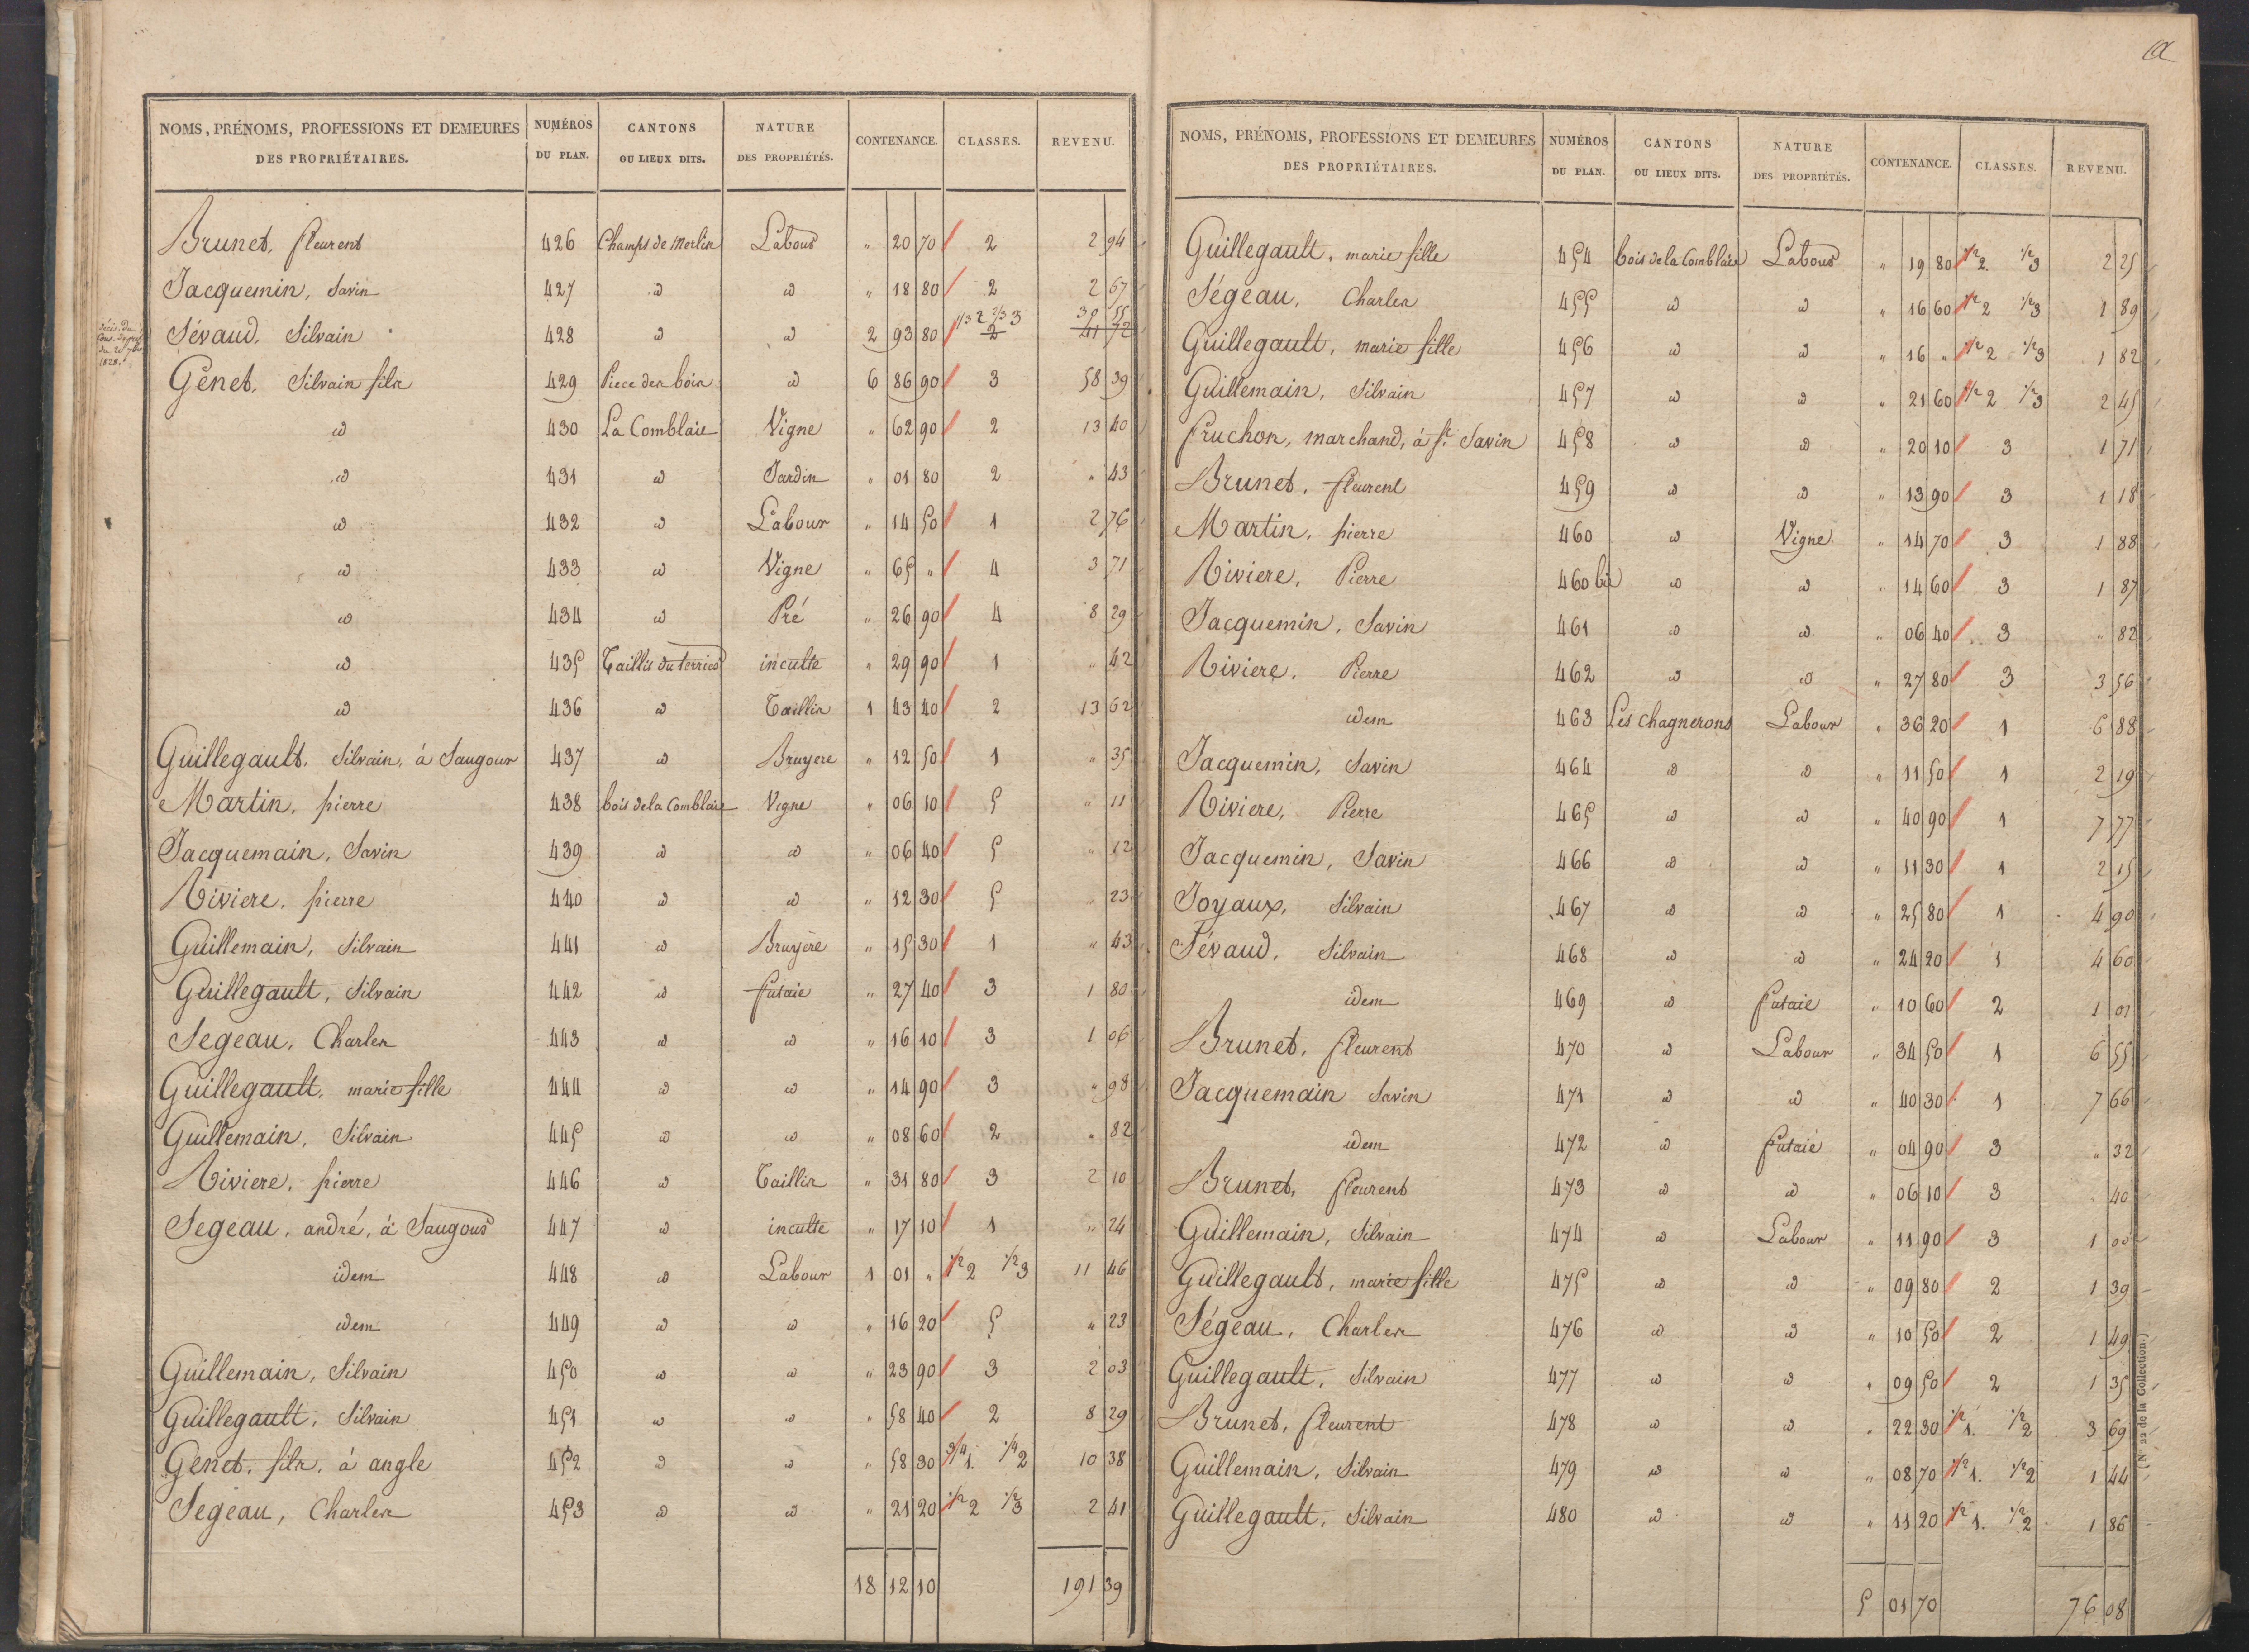 a
NOMS, PRÉNOMS, PROFESSIONS ET DEMEURES DES PROPRIÉTAIRES. NUMÉROS DU PLAN. CANTONS OU LIEUX DITS. NATURE DES PROPRIÉTÉS. CONTENANCE. CLASSES. REVENU.
Brunet, fleurent 426 Champs de Merlin Labour " 20 70 2 2 94
Jacquemin, Savin 427 id id " 18 80 2 2 67
Sévaud, Silvain 428 id id 2 93 80 1/3 2 2/3 3 2 35 55 41 72
1828.
Genet, Silvain fils 429 Piece des bois id 6 86 90 3 58 39
id 430 La Comblaie Vigne " 62 90 2 13 40
id 431 id Jardin " 01 80 2 " 43
id 432 id Labour " 14 50 1 2 76
id 433 id Vigne " 65 " 4 3 71
id 434 id Pré " 26 90 4 8 29
id 435 Taillis du terrier inculte " 29 90 1 " 42
id 436 id Taillis 1 43 40 2 13 62
Guillegault, Silvain, à Saugour 437 id Bruyere " 12 50 1 " 35
Martin, pierre 438 bois de la Comblaie Vigne " 06 10 5 " 11
Jacquemain, Savin 439 id id " 06 40 5 " 12
Riviere, pierre 440 id id " 12 30 5 " 23
Guillemain, Silvain 441 id Bruyère " 15 30 1 " 43
Guillegault, Silvain 442 id futaie " 27 40 3 1 80
Segeau, Charles 443 id id " 16 10 3 1 06
Guillegault, marie fille 444 id id " 14 90 3 " 98
Guillemain, Silvain 445 id id " 08 60 2 " 82
Riviere, pierre 446 id Taillis " 31 80 3 2 10
Segeau, andré, à Saugour 447 id inculte " 17 10 1 " 24
idem 448 id Labour 1 01 " 1/2 2 1/2 3 11 46
idem 449 id id " 16 20 5 " 23
Guillemain, Silvain 450 id id " 23 90 3 2 03
Guillegault, Silvain 451 id id " 58 40 2 8 29
Genet, fils, à angle 452 id id " 58 30 3/4 1. 1/4 2 10 38
Segeau, Charles 453 id id " 21 20 1/2 2 1/2 3 2 41
18 12 10 191 39
NOMS, PRÉNOMS, PROFESSIONS ET DEMEURES DES PROPRIÉTAIRES. NUMÉROS DU PLAN. CANTONS OU LIEUX DITS. NATURE DES PROPRIÉTÉS. CONTENANCE. CLASSES. REVENU.
Guillegault, marie fille 454 bois de la Comblaie Labour " 19 80 1/2 2. 1/2 3 2 25
Ségeau, Charles 455 id id " 16 60 1/2 2 1/2 3 1 89
Guillegault, marie fille 456 id id " 16 " 1/2 2 1/2 3 1 82
Guillemain, Silvain 457 id id " 21 60 1/2 2 1/2 3 2 45
Fruchon, marchand, à St. Savin 458 id id " 20 10 3 1 71
Brunet, fleurent 459 id id " 13 90 3 1 18
Martin, pierre 460 id Vigne " 14 70 3 1 88
Riviere, Pierre 460 bis id id " 14 60 3 1 87
Jacquemin, Savin 461 id id " 06 40 3 " 82
Riviere, Pierre 462 id id " 27 80 3 3 56
idem 463 Les Chagnerons Labour " 36 20 1 6 88
Jacquemin, Savin 464 id id " 11 50 1 2 19
Riviere, Pierre 465 id id " 40 90 1 7 77
Jacquemin, Savin 466 id id " 11 30 1 2 15
Joyaux, Silvain 467 id id " 25 80 1 4 90
Sévaud, Silvain 468 id id " 24 20 1 4 60
idem 469 id futaie " 10 60 2 1 01
Brunet, fleurent 470 id Labour " 34 50 1 6 55
Jacquemain Savin 471 id id " 40 30 1 7 66
idem 472 id futaie " 04 90 3 " 32
Brunet, fleurent 473 id id " 06 10 3 40
Guillemain, Silvain 474 id Labour " 11 90 3 1 00
Guillegault, marie fille 475 id id " 09 80 2 1 39
Ségeau, Charles 476 id id " 10 50 2 1 49
Guillegault, Silvain 477 id id " 09 50 2 1 35
Brunet, fleurent 478 id id " 22 30 1/2 1. 1/2 2 3 69
Guillemain, Silvain 479 id id " 08 70 1/2 1. 1/2 2 1 44
Guillegault, Silvain 480 id id " 11 20 1/2 1. 1/2 2 1 86
5 01 70 76 08
(N° 22 de la Collection.)